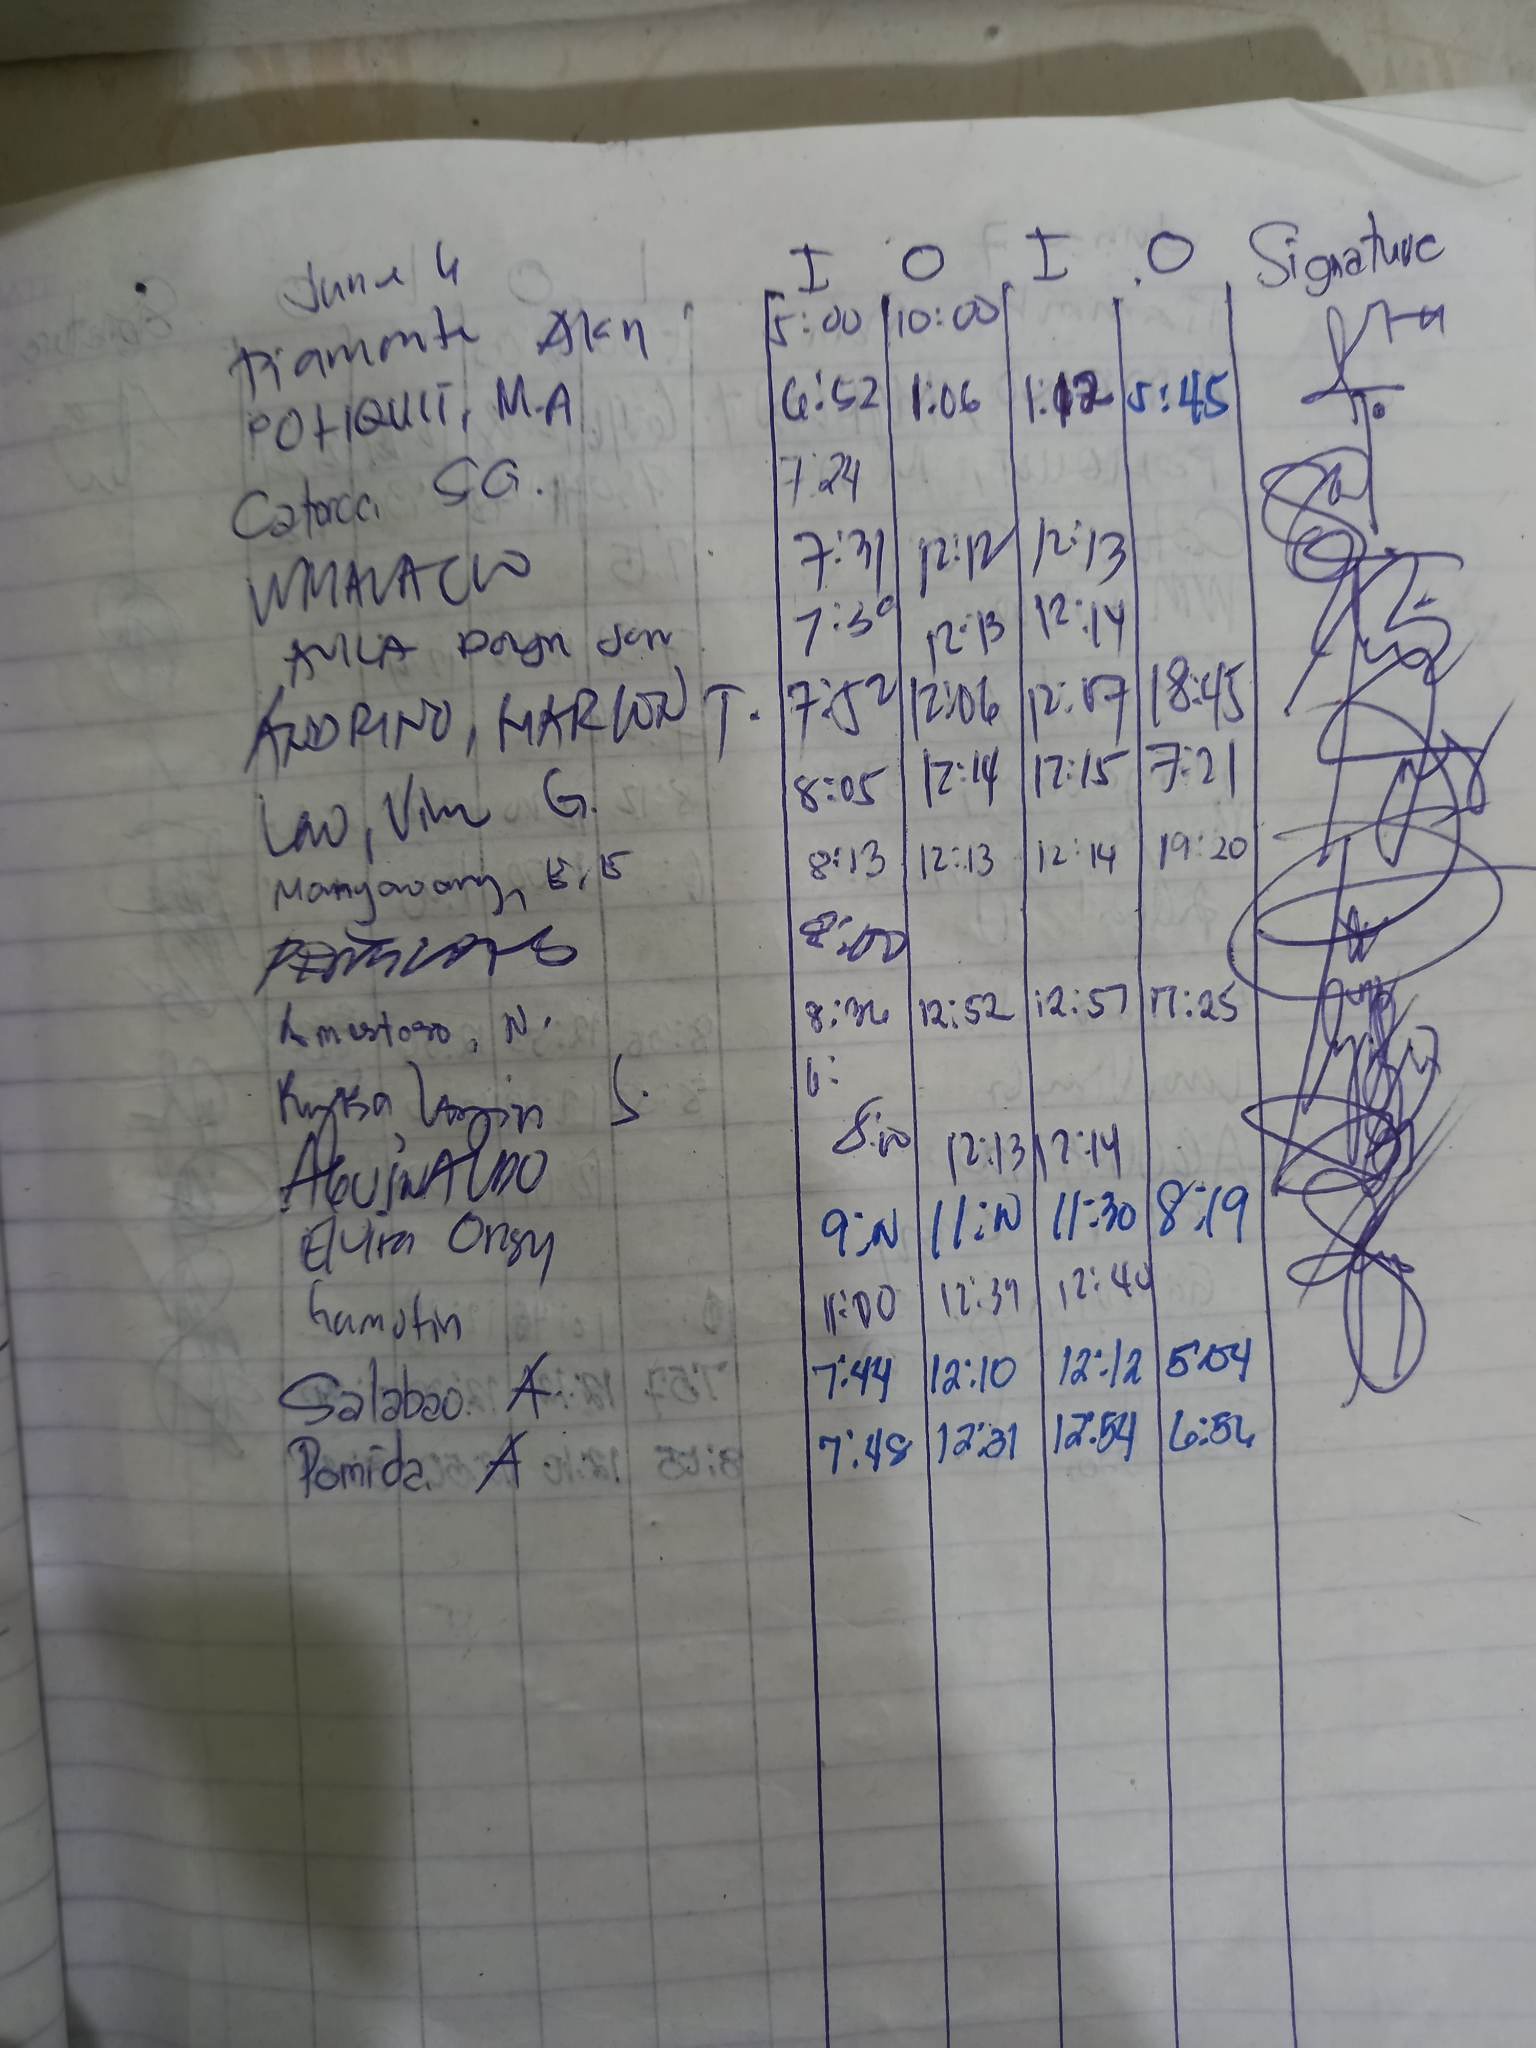 June 4 I O I O Signature
Piamonte Alen 5:00 10:00
POTIQUIT, M.A 6:52 1:06 1:12 5:45
Catorce SG. 7:24
WMALACLO 7:31 12:12 12:13
AVILA Jan 7:30 12:13 12:14
ANDRINO, MARLON T. 7:52 12:06 12:07 18:45
Lao, Vim G. 8:05 12:14 12:15 7:21
Mangavang, E.E 8:13 12:13 12:14 19:20
8:00
Amestoso, N. 8:36 12:52 12:57 17:25
S. 6:
AGUINALDO 12:13 12:14
Elvira 9:N 11:N 11:30 8:19
Gamotin 11:00 12:39 12:40
Salabao. A 7:44 12:10 12:12 5:54
Pomida. A 7:48 12:31 12:54 6:56